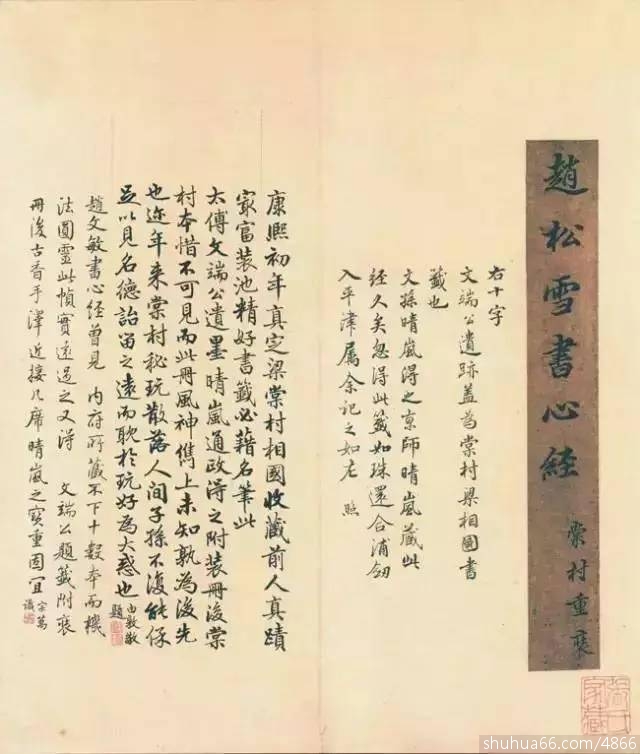 趙松雪書心經
棠村重裝
右十字
文端公遺跡蓋為棠村梁相國書
籤也
文孫晴嵐得之京師晴嵐藏此
經久矣忽得此籤如珠還合浦劒
入平津屬余記之如左 照
康熙初年真定梁棠村相國收藏前人真蹟
最富裝池精好書籤必藉名筆此
太傅文端公遺墨晴嵐通政得之附裝冊後棠
村本惜不可見而此冊風神雋上未知孰為後先
也近年來棠村秘玩散落人間子孫不復能保
足以見名德詒留之遠而耽於玩好為大惑也 由敦敬題
趙文敏書心經曾見 內府所藏不下十數本而機
法圓靈此幀實遠過之又得 文端公題籤附裝
冊後古香手澤近接几席晴嵐之寶重固宜 宗萬識
shuhua66.com/4866